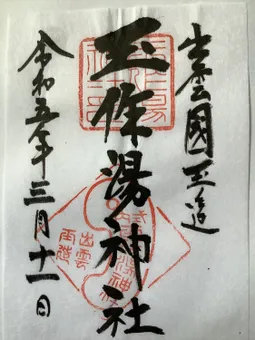 出雲國玉造
玉作湯神社
令和五年三月十一日
出雲
玉造